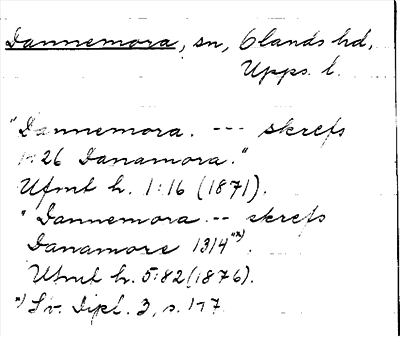 Dannemora, sn, Olands hd,
Upps. l.
"Dannemora. --- skrefs
1426 Danamora."
Ufmt h. 1:16 (1871).
"Dannemora -- skrefs
Danamore 1314"*).
Ufmt h. 5:82 (1876).
*) Sv. Dipl. 3, s.